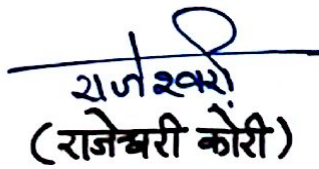 राजेश्वरी
(राजेश्वरी कोरी)